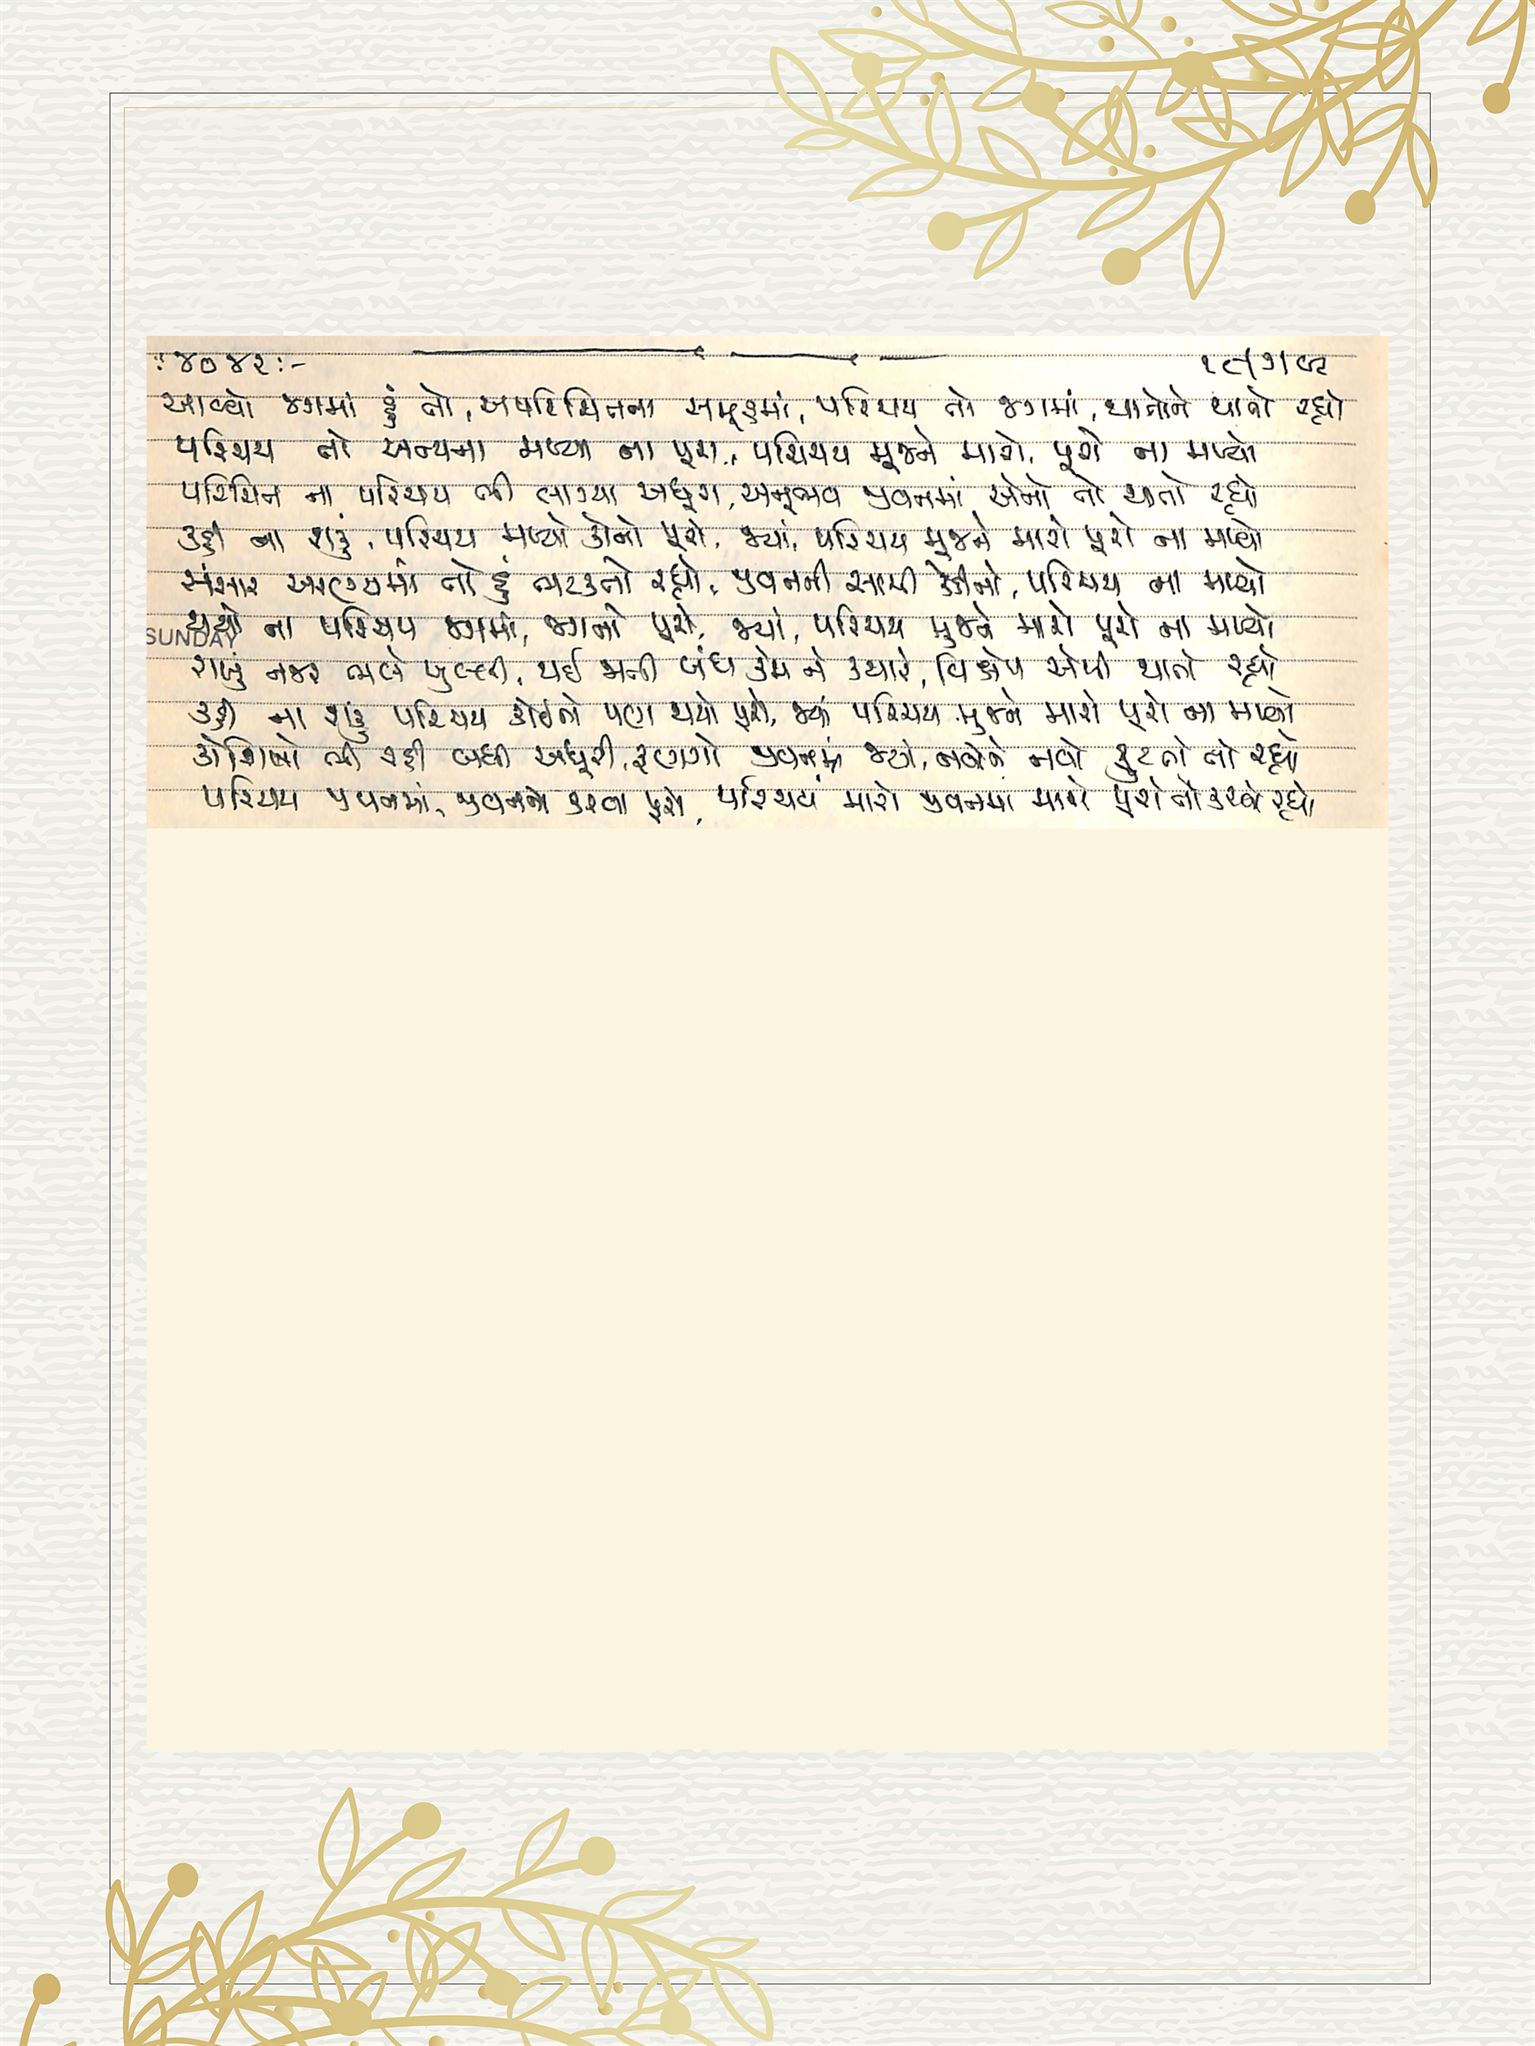 :૪૦૪૨:-
આવ્યો જગમાં હું તો, અપરિચિતના સમૂહમાં, પરિચય તો જગમાં, થાતોને થાતો રહ્યો
પરિચય તો અન્યના મળ્યા ના પૂરા, પરિચય મૂજને મારો, પૂરો ના મળ્યો
પરિચિત ના પરિચય ભી લાગ્યા અધૂરા, અનૂભવ જીવનમાં એનો તો થાતો રહ્યો
કહી ના શકું, પરિચય મળ્યો કોનો પૂરો, જ્યાં, પરિચય મુજને મારો પૂરો ના મળ્યો
સંસાર અરણ્યમાં તો હું ભટકતો રહ્યો, જીવનની સાચી કેડીનો, પરિચય ના મળ્યો
થયો ના પરિચય જગમાં, જગનો પૂરો, જ્યાં, પરિચય મુજને મારો પૂરો ના મળ્યો
SUNDAY
રાખું નજર ભલે ખુલ્લી, થઈ જાતી બંધ કેમ ને ક્યારે, વિક્ષેપ એથી થાતો રહ્યો
કહી ના શકું પરિચય કોઈનો પણ થયો પૂરો, જ્યાં પરિચય મુજને મારો પૂરો ના મળ્યો
કોશિશો ભી રહી બધી અધૂરી, ફણગો જીવનમાં જ્યાં, નવોને નવો ફુટતો તો રહ્યો
પરિચય જીવનમાં, જીવનનો કરવા પૂરો, પરિચય મારો જીવનમાં મારો પૂરો તો કરતો રહ્યો